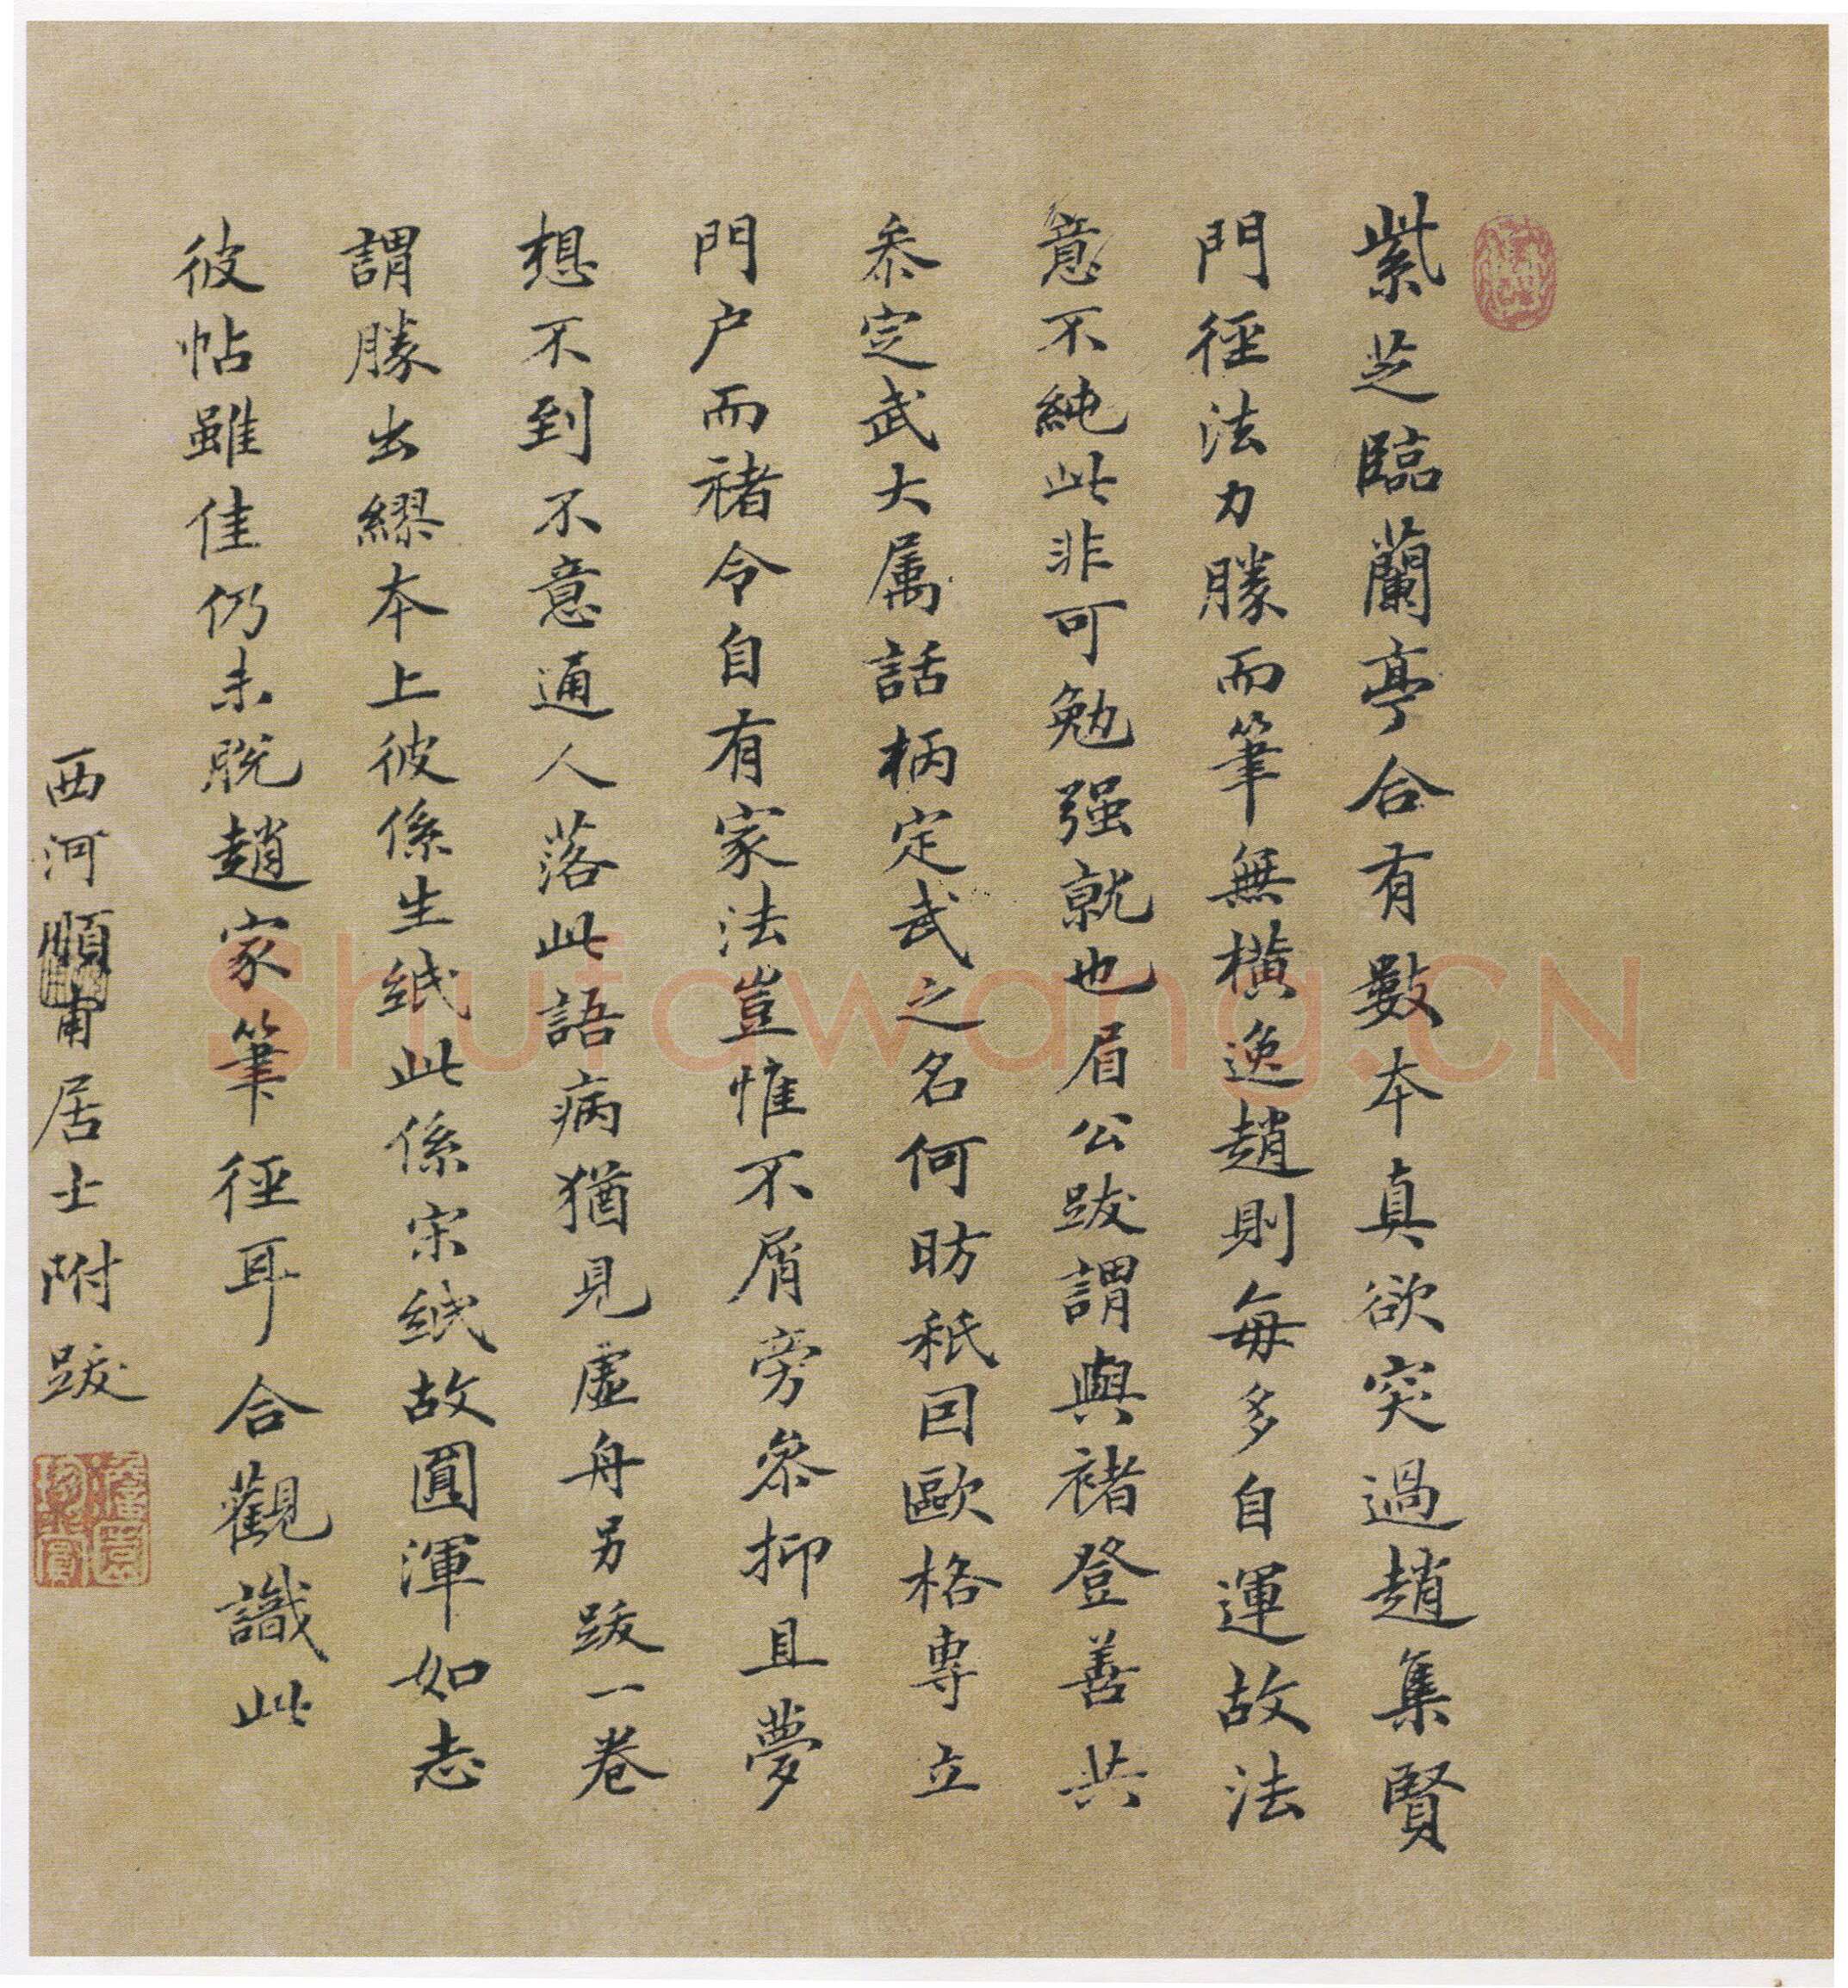 紫芝臨蘭亭合有數本真欲突過趙集賢
門徑法力勝而筆無橫逸趙則每多自運故法
意不純此非可勉强就也眉公跋謂與褚登善共
叅定武大属話柄定武之名何昉秖因歐格專立
門户而褚令自有家法豈惟不屑旁叅抑且夢
想不到不意通人落此語病猶見虛舟另跋一卷
謂勝出繆本上彼係生紙此係宋紙故圓渾如志
彼帖雖佳仍未脫趙家筆徑耳合觀識此
西河順甫居士附跋
Shufawang.CN